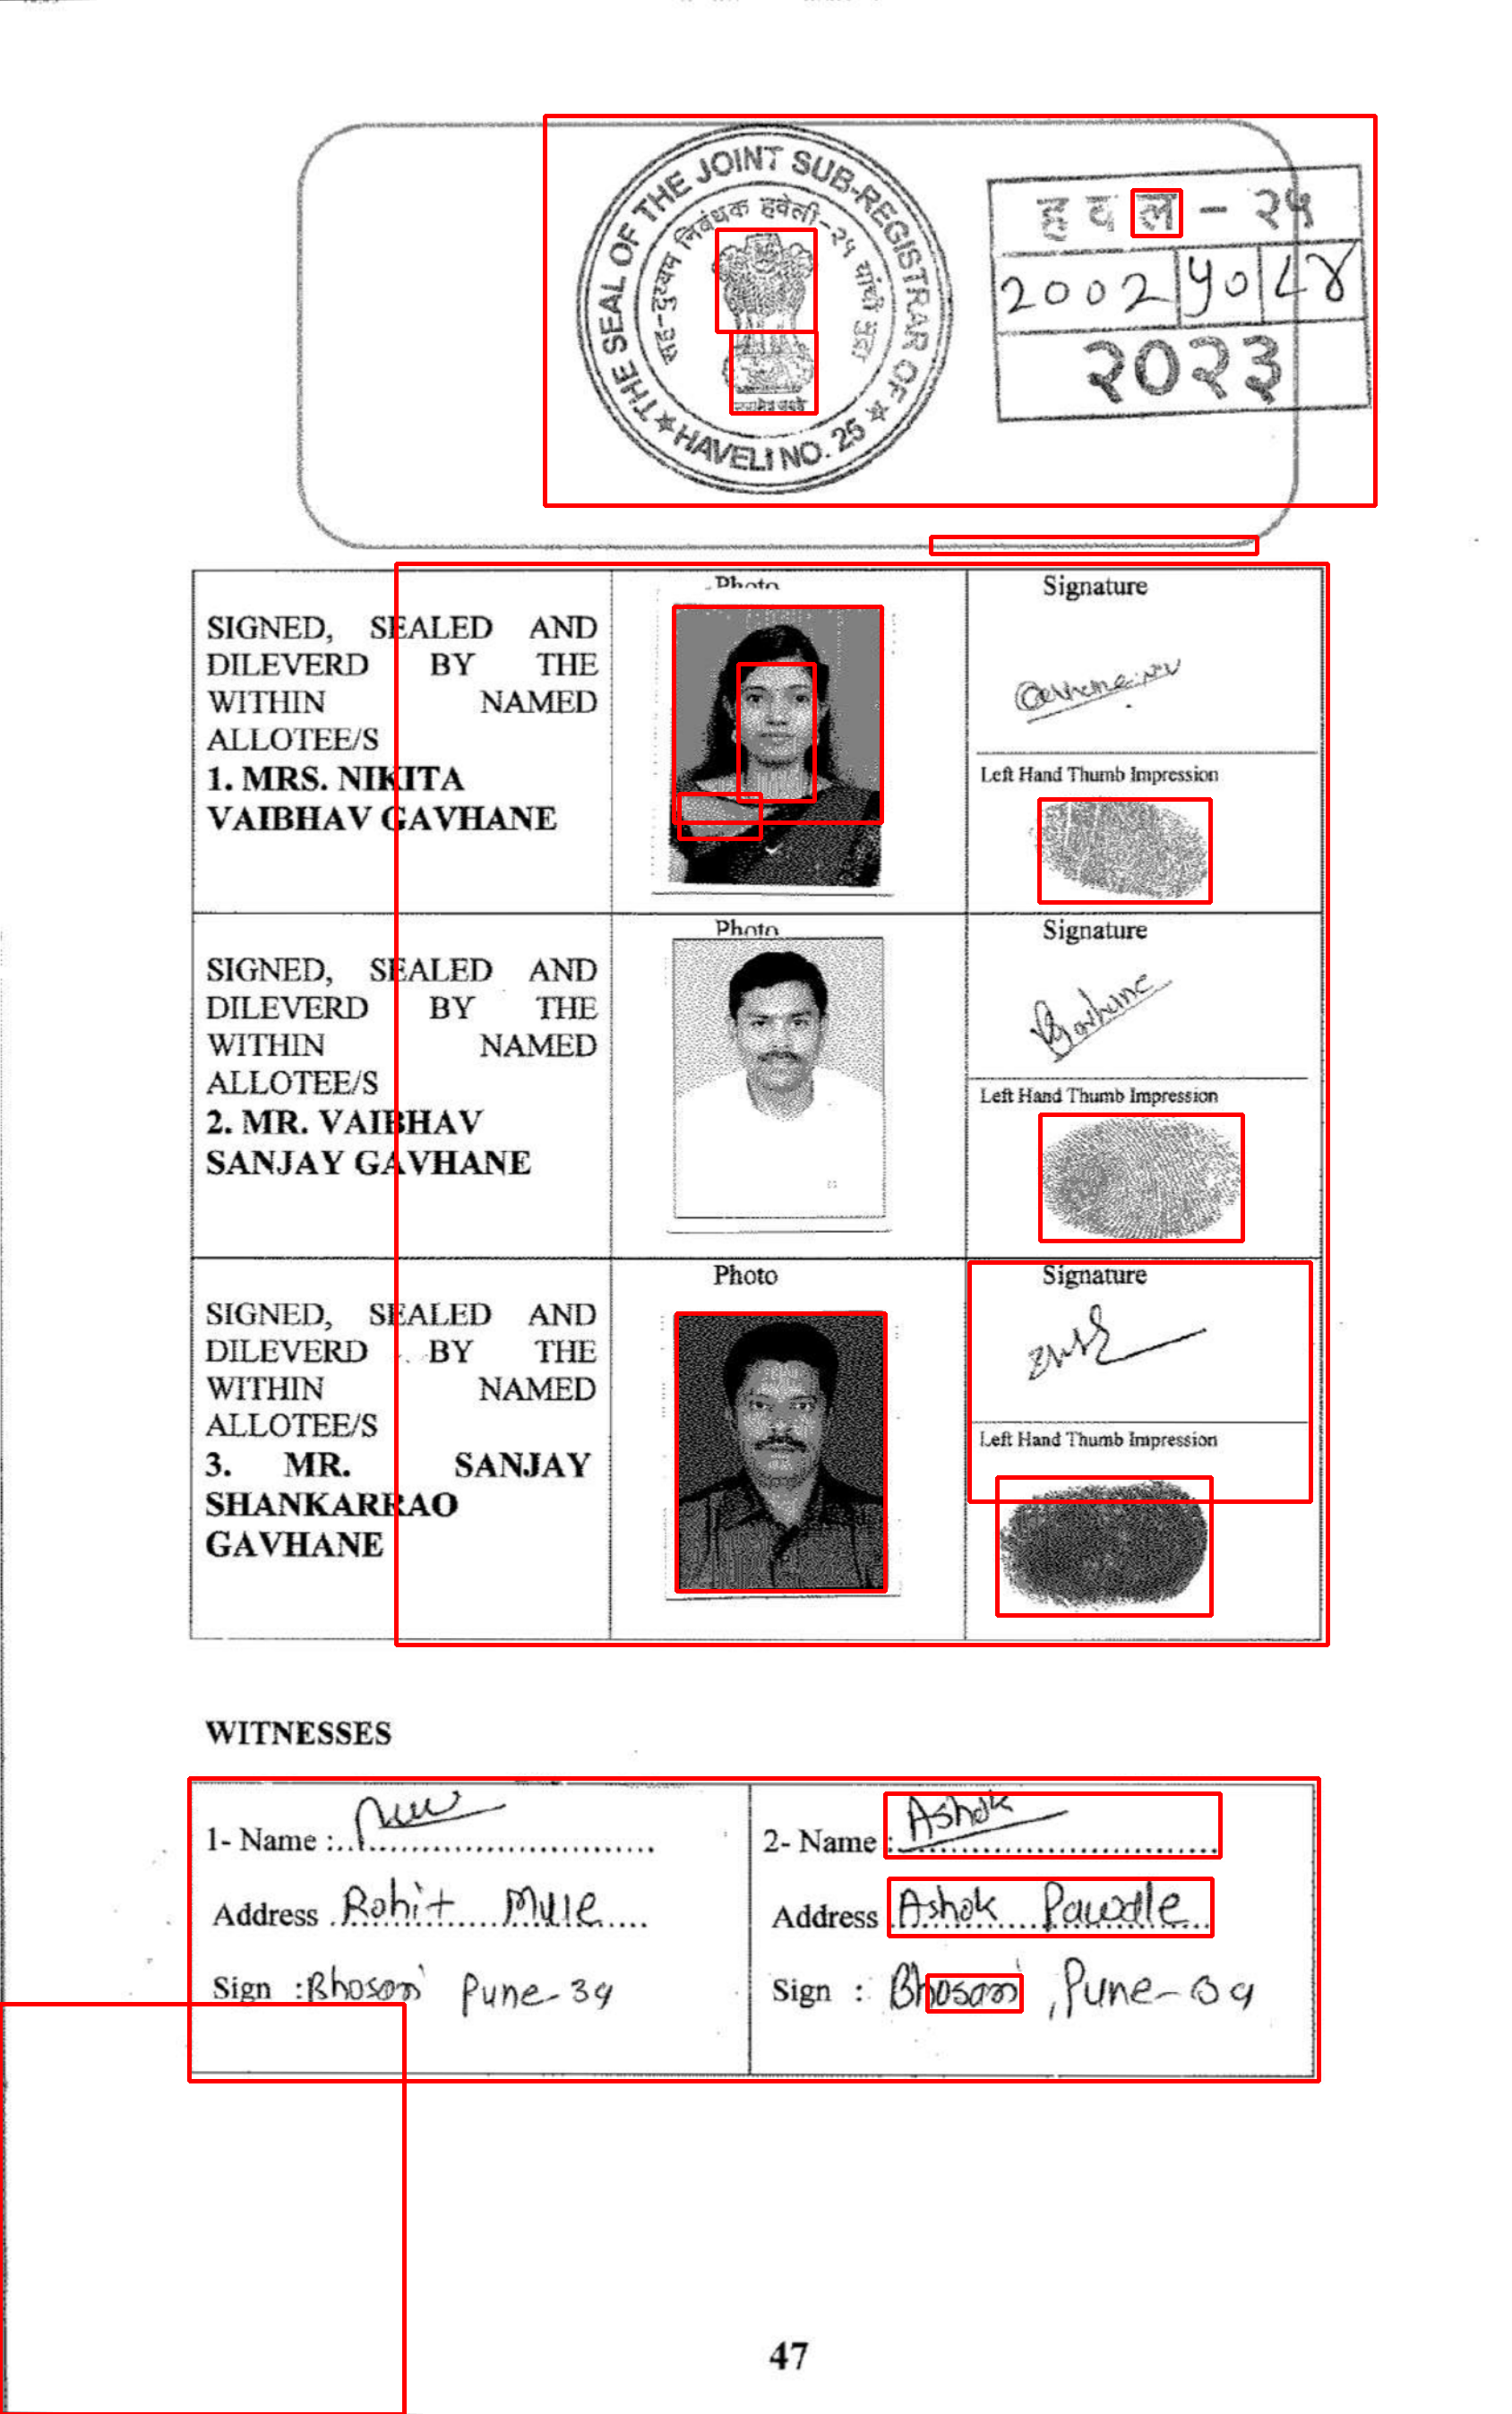 THE SEAL OF THE JOINT SUB-REGISTRAR OF
★ HAVELI NO. 25 ★
सह-दुय्यम निबंधक हवेली-२५ यांची मुद्रा
ह व ल - २५
2002 40 ८४
२०२३
SIGNED, SEALED AND
DILEVERD BY THE
WITHIN NAMED
ALLOTEE/S
1. MRS. NIKITA
VAIBHAV GAVHANE
Photo
Signature
Left Hand Thumb Impression
SIGNED, SEALED AND
DILEVERD BY THE
WITHIN NAMED
ALLOTEE/S
2. MR. VAIBHAV
SANJAY GAVHANE
Photo
Signature
Gavhane
Left Hand Thumb Impression
SIGNED, SEALED AND
DILEVERD BY THE
WITHIN NAMED
ALLOTEE/S
3. MR. SANJAY
SHANKARRAO
GAVHANE
Photo
Signature
Left Hand Thumb Impression
WITNESSES
1- Name :
Address Rohit Mule
Sign : Bhosari Pune-39
2- Name : Ashok
Address Ashok Pawdle
Sign : Bhosari, Pune-39
47